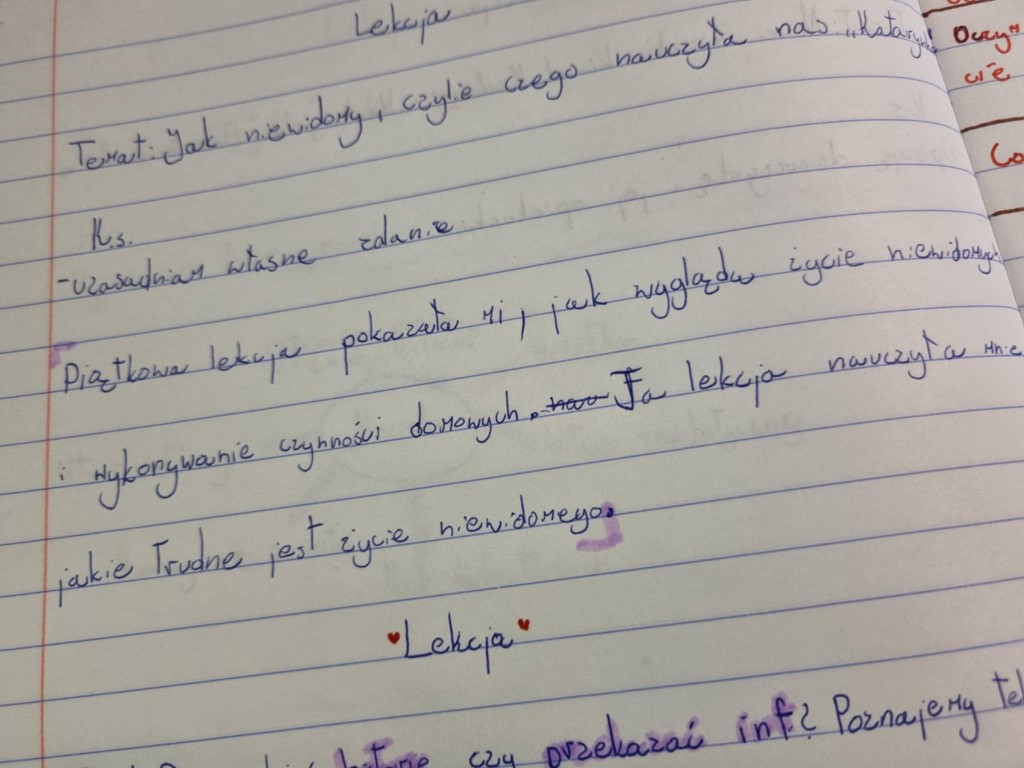 Lekcja
Temat: Jak niewidomy, czylie czego nauczyła nas „Kataryn
K.s.
-uzasadniam własne zdanie
Piątkowa lekcja pokazała mi, jak wygląda życie niewidomych
i wykonywanie czynności domowych. Ta lekcja nauczyła mnie
jakie trudne jest życie niewidomego.
Lekcja
czy przekazać inf? Poznajemy tel
Oczym
cie
Co